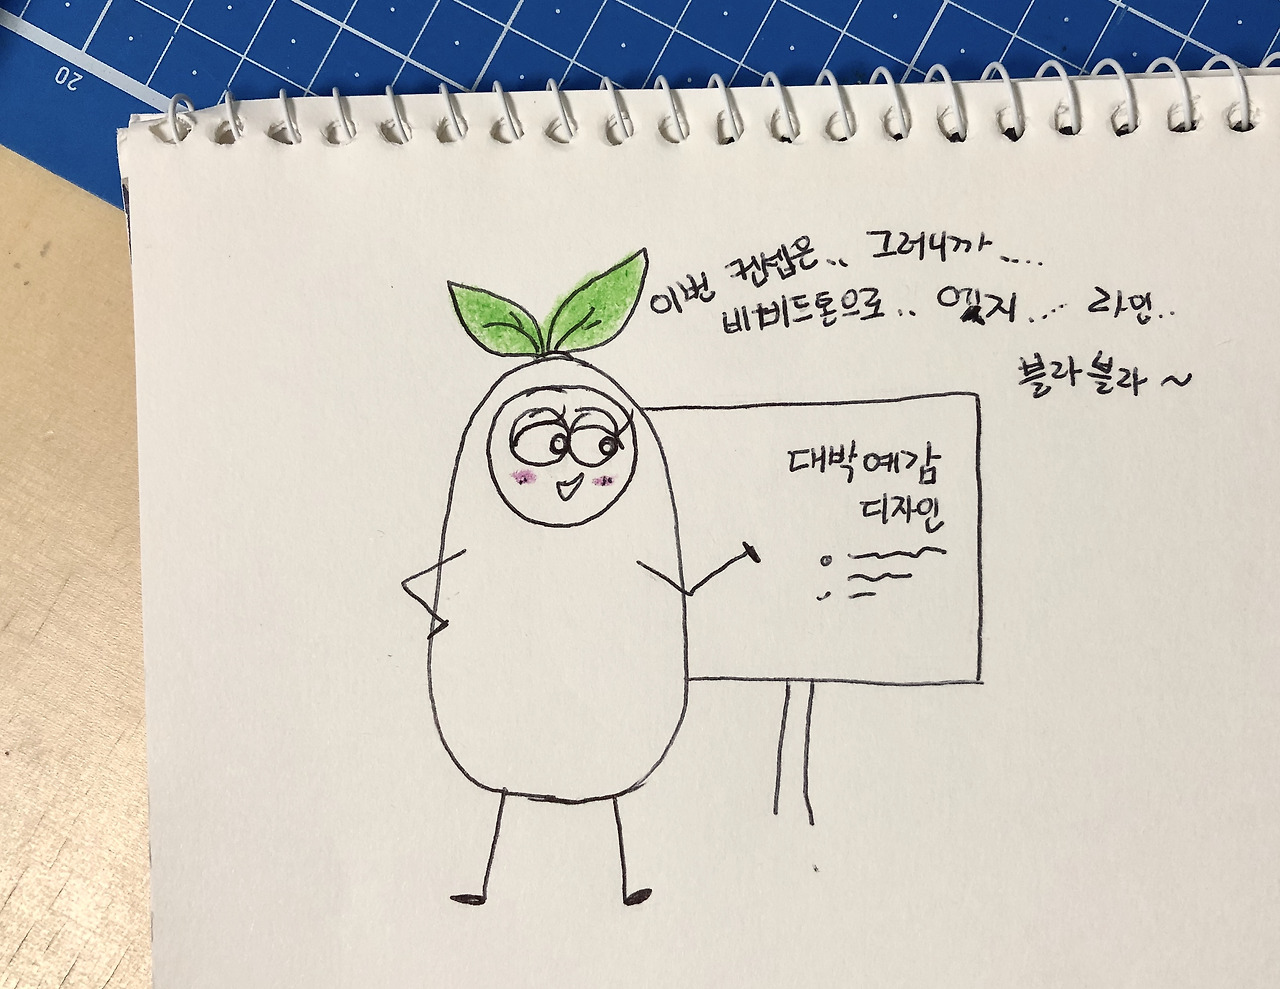 이번 컨셉은.. 그러니까.....
비비드톤으로.. 엣지..... 라인..
블라블라~
대박예감
디자인
20